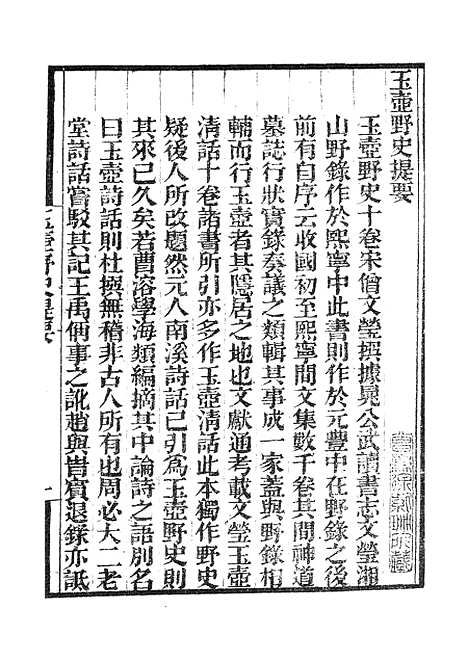 玉壺野史提要
玉壺野史十卷宋僧文瑩撰據晁公武讀書志文瑩湘
山野錄作於熙寧中此書則作於元豐中在野錄之後
前有自序云收國初至熙寧間文集數千卷其間神道
墓誌行狀實錄奏議之類輯其事成一家蓋與野錄相
輔而行玉壺者其隱居之地也文獻通考載文瑩玉壺
清話十卷諸書所引亦多作玉壺清話此本獨作野史
疑後人所改題然元人南溪詩話已引爲玉壺野史則
其來已久矣若曹溶學海類編摘其中論詩之語別名
曰玉壺詩話則杜撰無稽非古人所有也周必大二老
堂詩話嘗駁其記王禹偁事之訛趙與旹賓退錄亦詆
玉壺野史提要
一